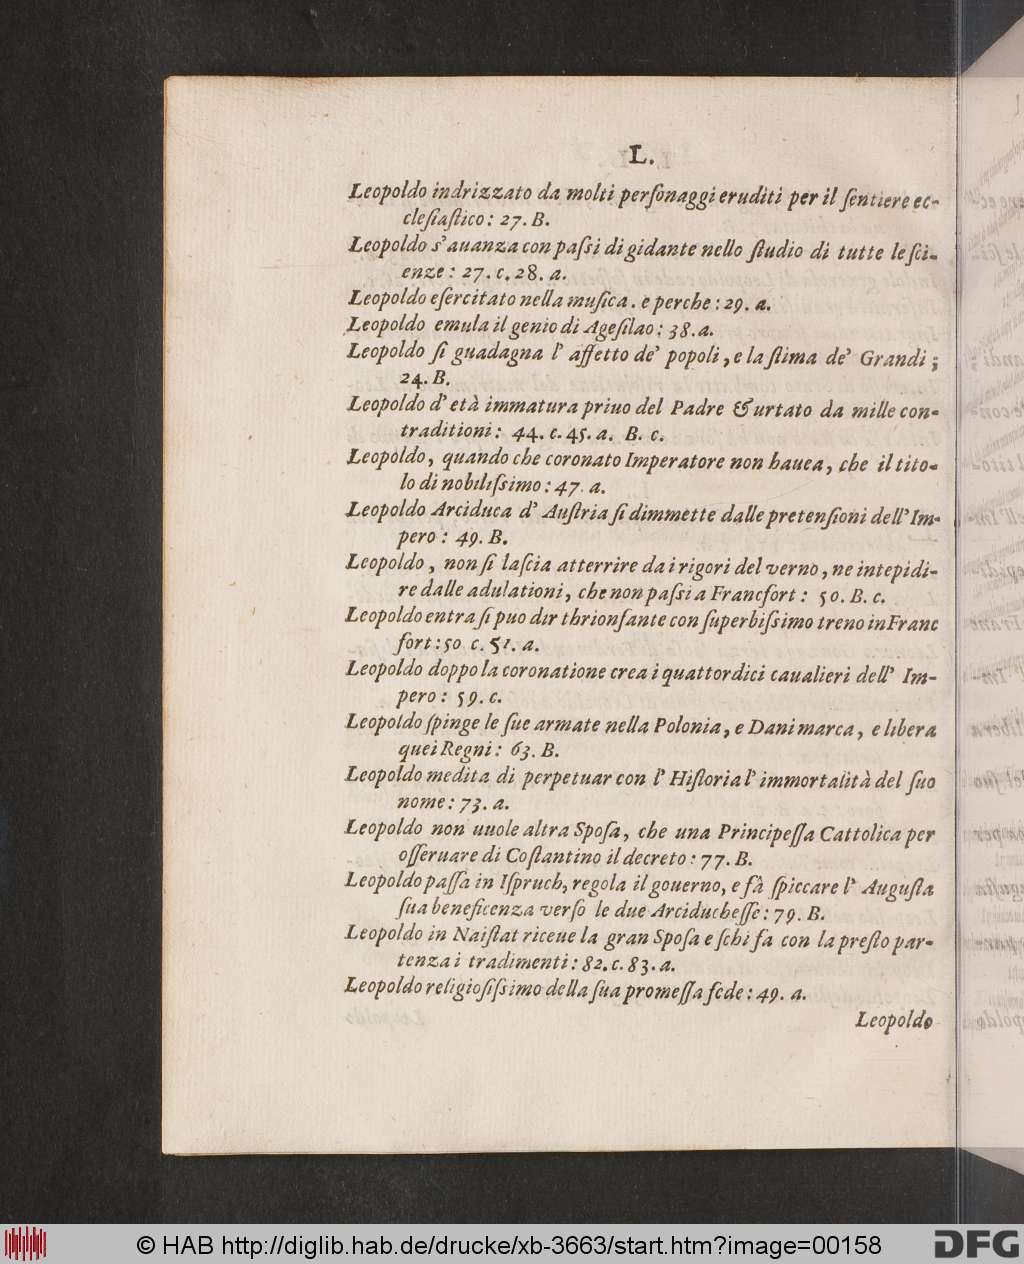 L.
Leopoldo indrizzato da molti perſonaggi eruditi per il ſentiere ec-
cleſiaſtico: 27. B.
Leopoldo s'auanza con paſsi di gidante nello ſtudio di tutte le ſci-
enze: 27. c. 28. a.
Leopoldo eſercitato nella muſica. e perche: 29. a.
Leopoldo emula il genio di Ageſilao: 38. a.
Leopoldo ſi guadagna l' affetto de' popoli, e la ſtima de' Grandi;
24. B.
Leopoldo d' età immatura priuo del Padre & urtato da mille con-
traditioni: 44. c. 45. a. B. c.
Leopoldo, quando che coronato Imperatore non hauea, che il tito-
lo di nobiliſsimo: 47. a.
Leopoldo Arciduca d' Auſtria ſi dimmette dalle pretenſioni dell' Im-
pero: 49. B.
Leopoldo, non ſi laſcia atterrire da i rigori del verno, ne intepidi-
re dalle adulationi, che non paſsi a Francfort: 50. B. c.
Leopoldo entra ſi puo dir thrionfante con ſuperbiſsimo treno in Franc
fort: 50 c. 51. a.
Leopoldo doppo la coronatione crea i quattordici caualieri dell' Im-
pero: 59. c.
Leopoldo ſpinge le ſue armate nella Polonia, e Danimarca, e libera
quei Regni: 63. B.
Leopoldo medita di perpetuar con l' Hiſtoria l' immortalità del ſuo
nome: 73. a.
Leopoldo non uuole altra Spoſa, che una Principeſſa Cattolica per
oſſeruare di Coſtantino il decreto: 77. B.
Leopoldo paſſa in Iſpruch, regola il gouerno, e fà ſpiccare l' Auguſta
ſua beneficenza verſo le due Arciducheſſe: 79. B.
Leopoldo in Naiſtat riceue la gran Spoſa e ſchifa con la preſto par-
tenza i tradimenti: 82. c. 83. a.
Leopoldo religioſiſsimo della ſua promeſſa fede: 49. a.
Leopoldo
© HAB http://diglib.hab.de/drucke/xb-3663/start.htm?image=00158
DFG